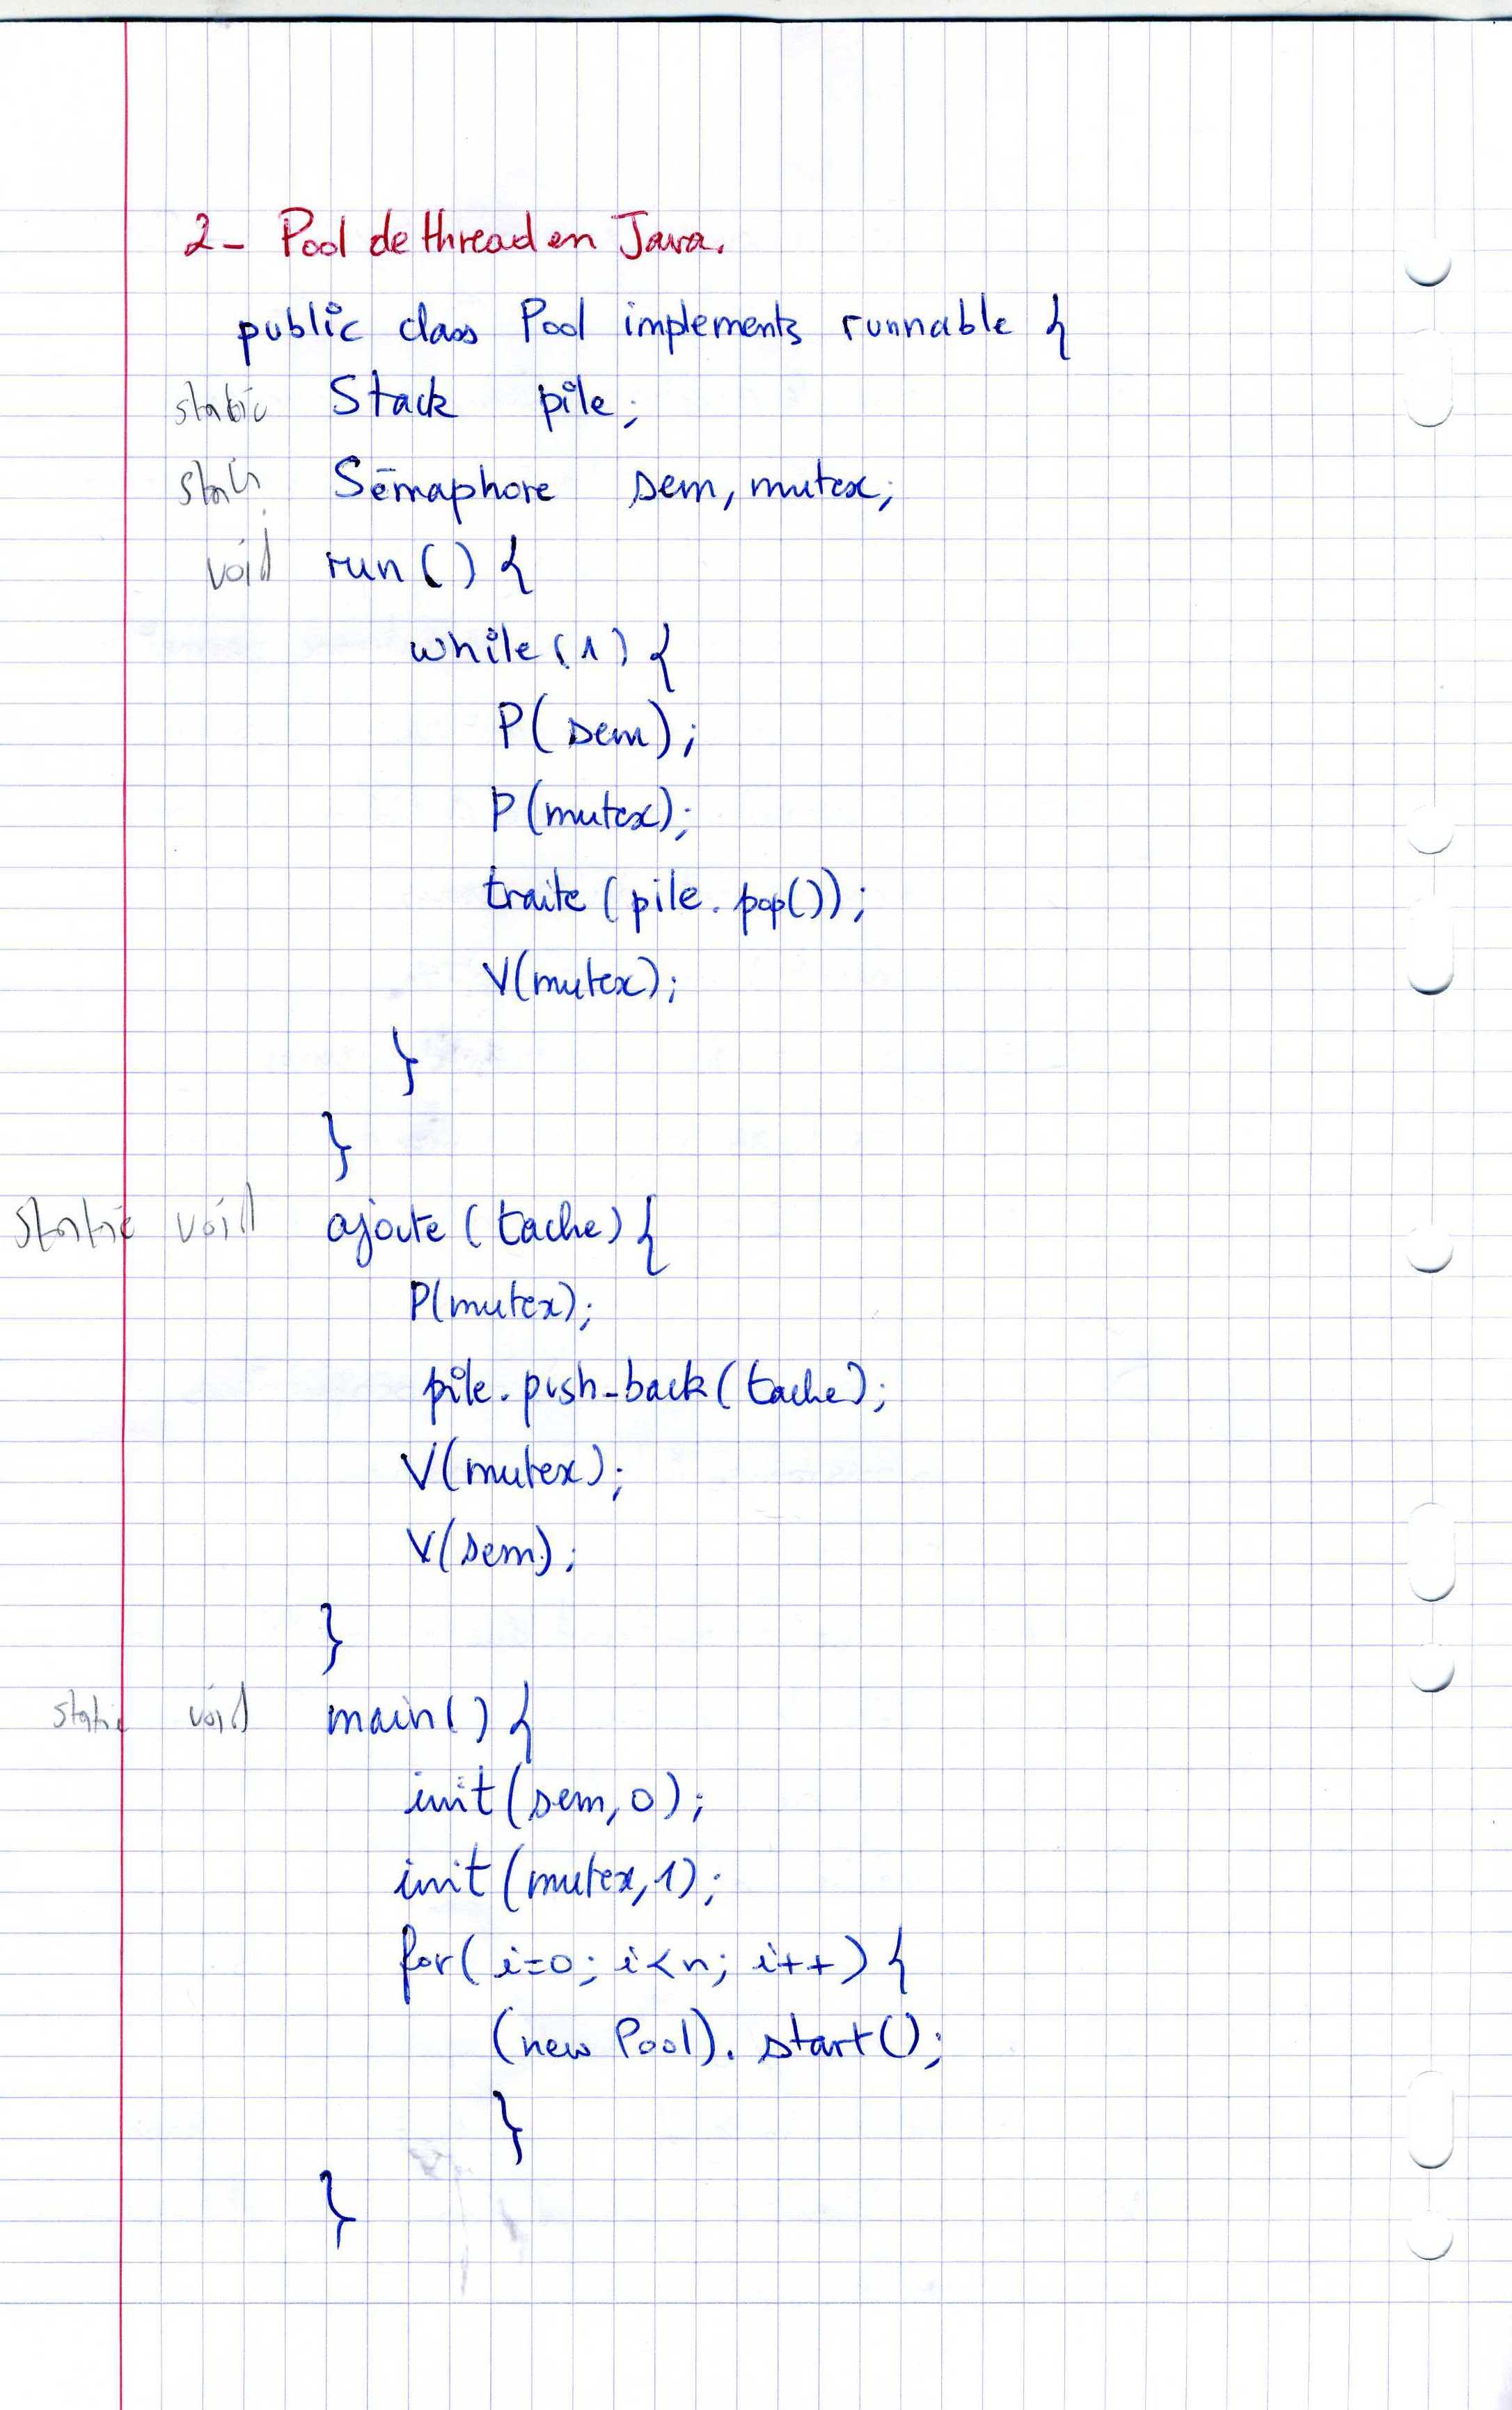 2- Pool de thread en Java.
public class Pool implements runnable {
static Stack pile;
static Sémaphore sem, mutex;
void run() {
while(1) {
P(sem);
P(mutex);
traite(pile.pop());
V(mutex);
}
}
static void ajoute(tache){
P(mutex);
pile.push-back(tache);
V(mutex);
V(sem);
}
static void main() {
init(sem, 0);
init(mutex, 1);
for(i=0; i<n; i++) {
(new Pool).start();
}
}